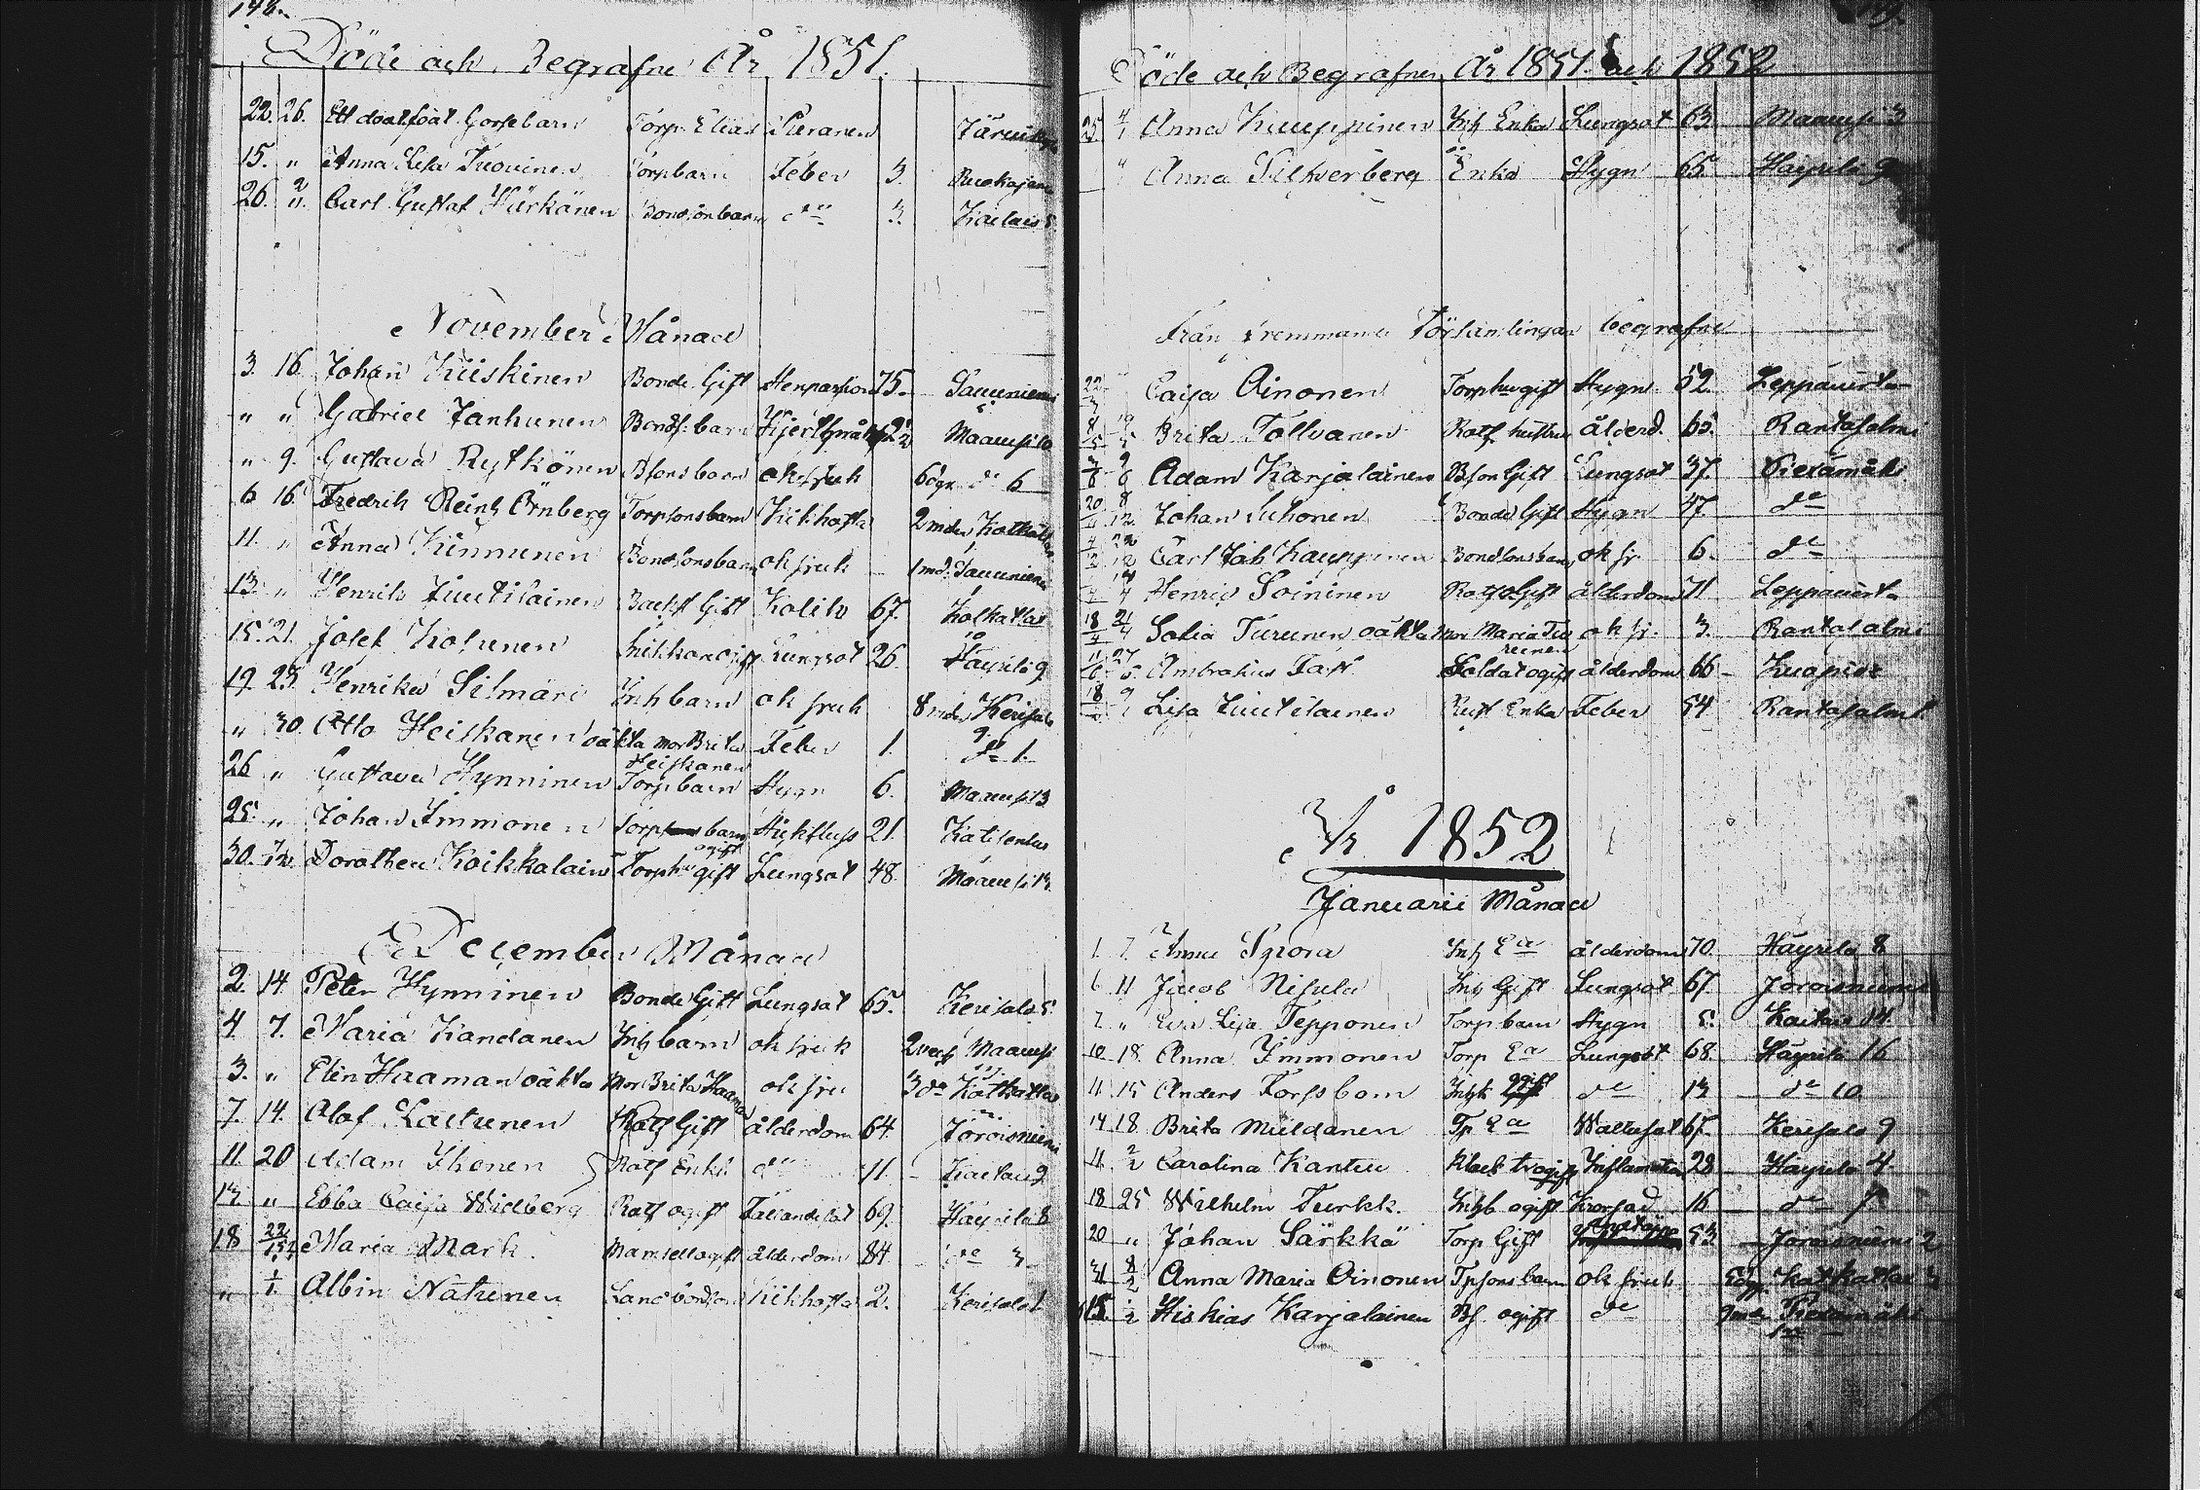 148.
Döde och Begrafne År 1851.
22. 26. Ett dödfödt Gossebarn Torp. Elias
15. " Anna Lisa Tuovinen Torpbarn Feber 3.
26. " Carl Gustaf Härkönen Bondsonbarn do 3. Kaitais 5.
November Månad
3. 16. Johan Kiiskinen Bonde Gift 75. Sauuniemi
" " Gabriel Janhunen Bondf. barn 2 1/2 Maavesi 10
" 9. Gustava Rytkönen Bsonsbarn ok sjuk 6 dgr do 6
6 16. Fredrik Reinh Örnberg Torpsonsbarn Kikhosta 2 mdr Kotkatlax
11. " Anna Kinnunen Bondsonsbarn ok sjuk 1 md. Sauuniemi
13. " Henrik Juutilainen Backst Gift Kolik 67. Kotkatlax
15. 21. Josef Kosunen ogift Lungsot 26. Häyrilä 9
19. 23. Henrika Silmäri Inh barn ok sjuk 8 mdr Kerisalo 9
" 30. Otto Heiskanen oäkta Mor Brita Heiskanen Feber 1. do 1.
26 " Gustava Hynninen Torpbarn Hygn 6. Maavesi 3
25. " Johan Immonen Torp barn ogift Stickfluss 21. Katisenlax
30. 7/12. Dorothea Koikkalain Torphu gift Lungsot 48. Maavesi 13.
December Månad
2. 14. Peter Hynninen Bonde Gift Lungsot 65. Kerisalo 5.
4. 7. Maria Kandanen Inhbarn ok sjuk 2 veck Maavesi
3. " Elin Haaman oäkta Mor Brita Haaman ok sju 3 do Kotkatlax
7. 14. Olof Laitinen Rotf Gift ålderdom 64. Joroisniemi
11. 20 Adam Ikonen Rotf Enkl do 71. Kaitais 2
13. " Ebba Caisa Widberg Rotf ogift 69. Häyrilä 8
18 22/152 Maria Mark Mamsell ogift ålderdom 84. do 3
" 1/1 Albin Natunen Kikhosta 2. Kerisalo 1
Döde och Begrafne År 1851 och 1852
25 4/1 Anna Kauppinen Inh Enka Lungsot 63. Maavesi 3
" Anna Silfverberg Enka Hygn 65. Häyrilä 9
Från främmande Församlingar begrafne
Caisa Ainonen Torphu gift Hygn 52. Leppävirta
Brita Tollvanen Rotf hustru ålderd. 65. Rantasalmi
Adam Karjalainen Bson Gift Lungsot 37. Pieksämäki
Johan Suhonen Bonde Gift Hygn 47. do
Carl Joh Kauppinen Bondsonsbarn ok sj. 6. do
Henric Soininen Rotf Gift ålderdom 71. Leppävirta
Sofia Turunen oäkta Mor Maria Turunen ok sj. 3. Rantasalmi
Ambrosius Fast Soldat ogift ålderdom 66 Kuopio
Lisa Juutilainen Enka Feber 54 Rantasalmi
År 1852
Januarii Månad
1. 7. Anna Spora Inh Ea ålderdom 70. Häyrilä 8
6 11 Jacob Nisula Inh Gift Lungsot 67. Joroisniemi
7. " Eva Lisa Tepponen Torpbarn Hygn 5. Kaitais 14
10 18. Anna Immonen Torp Ea Lungsot 68. Häyrilä 16
11 15 Anders Forssbom Inhk ogift do 13 do 10.
14 18. Brita Muldanen Tp Ea Wattusot 67. Kerisalo 9
11 2/2 Carolina Kantu ogift Inflamation 28 Häyrilä 4
18 25 Wilhelm Turkk. Inhb ogift 16 do 7
20 " Johan Särkkä Torp Gift 53. Joroisniemi 2
31 8/2 Anna Maria Ainonen Tpsonsbarn ok sjuk Kotkatlax 3
15. 1/2 Hiskias Karjalainen Bf. ogift do Pieksämäki